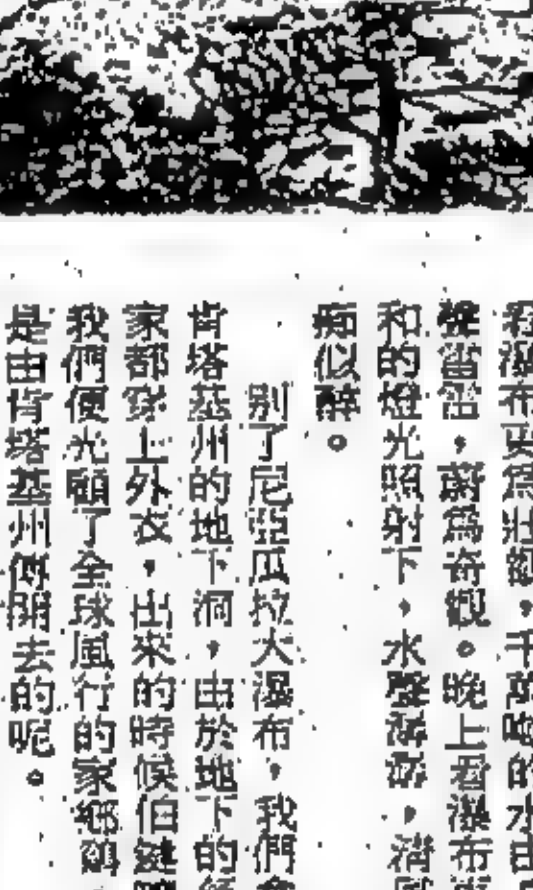 看瀑布更爲壯觀，千萬噸的水由
聲當當，蔚爲奇觀。晚上看瀑布
和的燈光照射下，水聲潺潺，清風
痴似醉。
別了尼亞瓜拉大瀑布，我們
肯塔基州的地下洞，由於地下的
家都穿上外衣，出來的時候伯
我們便光顧了全球風行的家鄉鷄，
是由肯塔基州傳開去的呢。